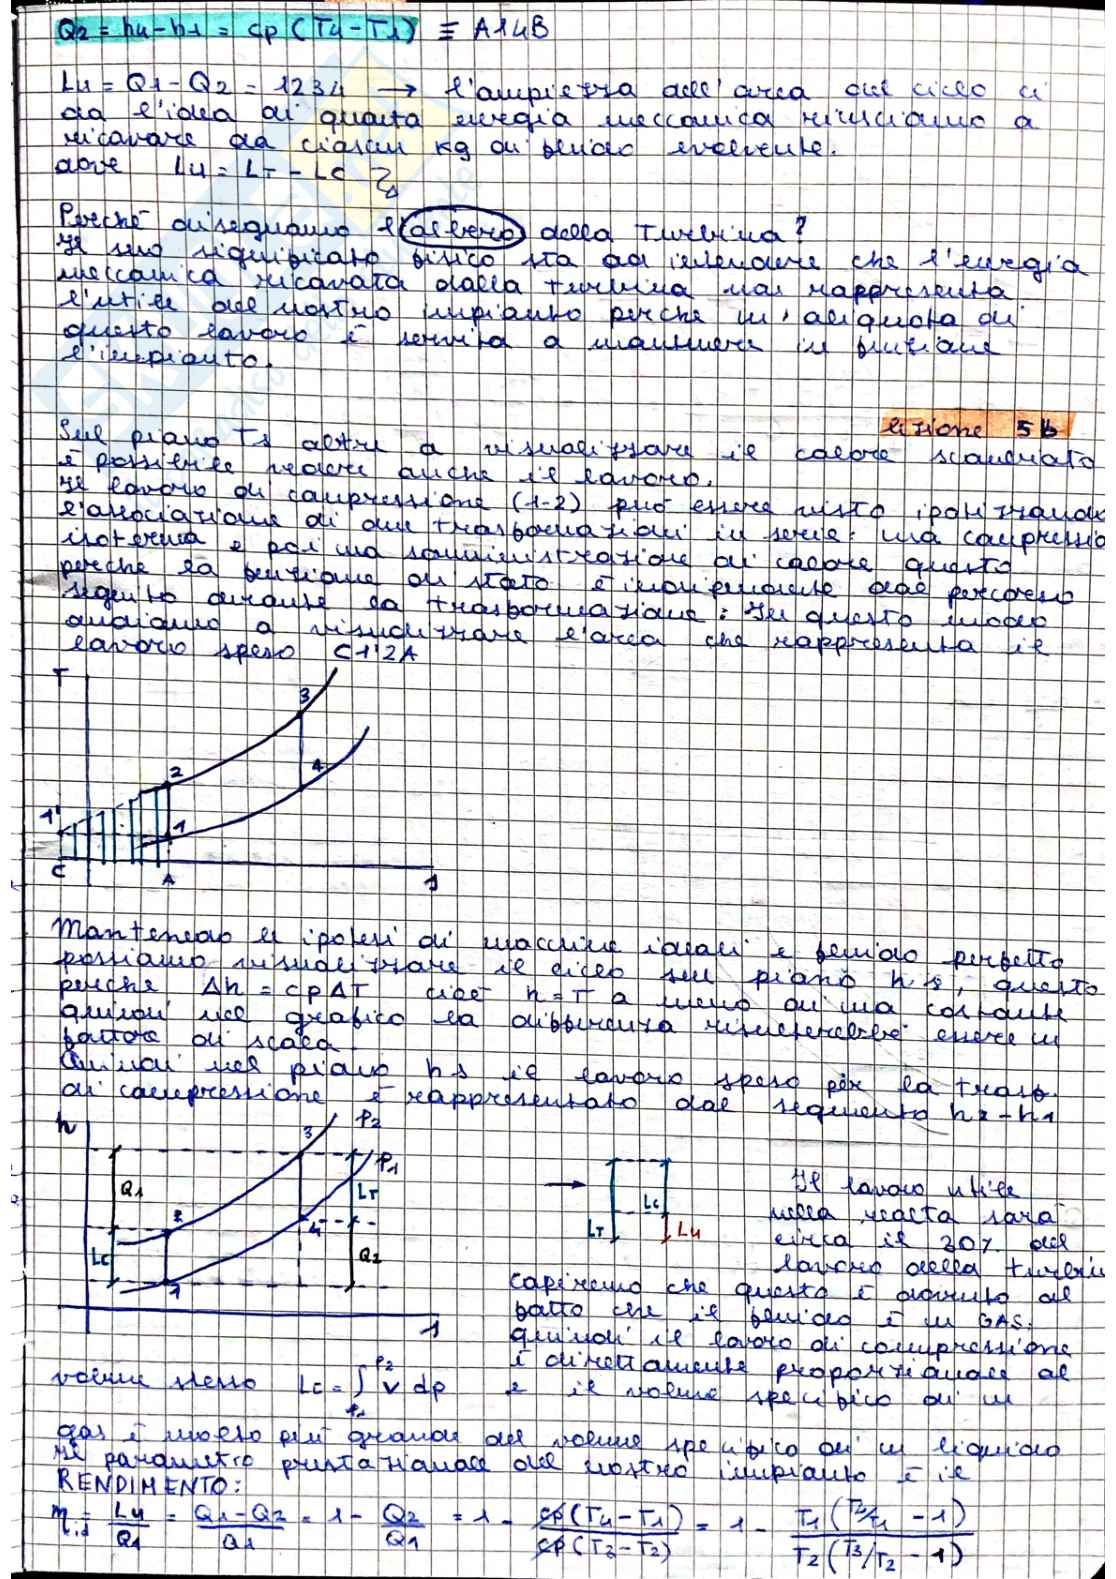 Q2 = h4-h1 = cp (T4-T1) ≡ A14B
Lu = Q1-Q2 = 1234 → l'ampiezza dell'area del ciclo ci
da l'idea di quanta energia meccanica riusciamo a
ricavare da ciascun kg di fluido evolvente.
dove Lu = LT - LC
Perché disegnamo l'albero della Turbina?
Il suo significato fisico sta ad intendere che l'energia
meccanica ricavata dalla turbina non rappresenta
l'utile del nostro impianto perché un'aliquota di
questo lavoro è servita a mantenere in funzione
l'impianto.
lezione 5b
Sul piano Ts oltre a visualizzare il calore scambiato
è possibile vedere anche il lavoro.
Il lavoro di compressione (1-2) può essere visto ipotizzando
l'associazione di due trasformazioni in serie: una compressio
isoterma e poi una somministrazione di calore questo
perché la funzione di stato è indipendente dal percorso
seguito durante la trasformazione: In questo modo
andiamo a visualizzare l'area che rappresenta il
lavoro speso C1'2A
T
3
2
4
1'
1
C
A
s
Mantenendo le ipotesi di macchine ideali e fluido perfetto
possiamo visualizzare il ciclo sul piano h s, questo
perché Δh = cpΔT cioè h=T a meno di una costante
quindi nel grafico la differenza risulterebbe essere un
fattore di scala.
Quindi nel piano hs il lavoro speso per la trasf.
di compressione è rappresentato dal segmento h2-h1
h
P2
3
P1
Q1
LT
2
4
LC
Q2
1
s
→
LT
LC
Lu
Il lavoro utile
nella realtà sarà
circa il 30% del
lavoro della turbin
capiremo che questo è dovuto al
fatto che il fluido è un GAS.
quindi il lavoro di compressione
è direttamente proporzionale al
volume stesso Lc = ∫ P1 P2 v dp e il volume specifico di un
gas è molto più grande del volume specifico di un liquido
Il parametro prestazionale del nostro impianto è il
RENDIMENTO:
ηid = Lu/Q1 = (Q1-Q2)/Q1 = 1 - Q2/Q1 = 1 - cp(T4-T1)/cp(T3-T2) = 1 - T1(T4/T1 - 1)/T2(T3/T2 - 1)